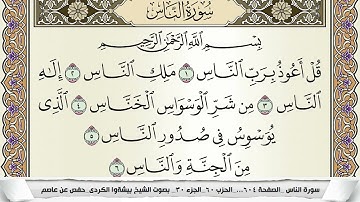 سُورَةُ النَّاسِ
بِسْمِ اللَّهِ الرَّحْمَٰنِ الرَّحِيمِ
قُلْ أَعُوذُ بِرَبِّ النَّاسِ ١ مَلِكِ النَّاسِ ٢ إِلَٰهِ
النَّاسِ ٣ مِن شَرِّ الْوَسْوَاسِ الْخَنَّاسِ ٤ الَّذِي
يُوَسْوِسُ فِي صُدُورِ النَّاسِ ٥
مِنَ الْجِنَّةِ وَالنَّاسِ ٦
سورة الناس _الصفحة ٦٠٤_... الحزب ٦٠_الجزء ٣٠_ بصوت الشيخ بيشةوا الكردى_حفص عن عاصم